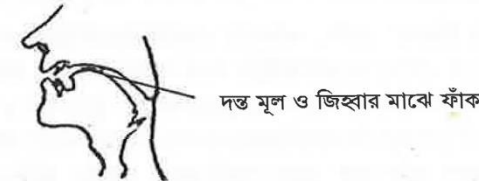 দন্ত মূল ও জিহ্বার মাঝে ফাঁক